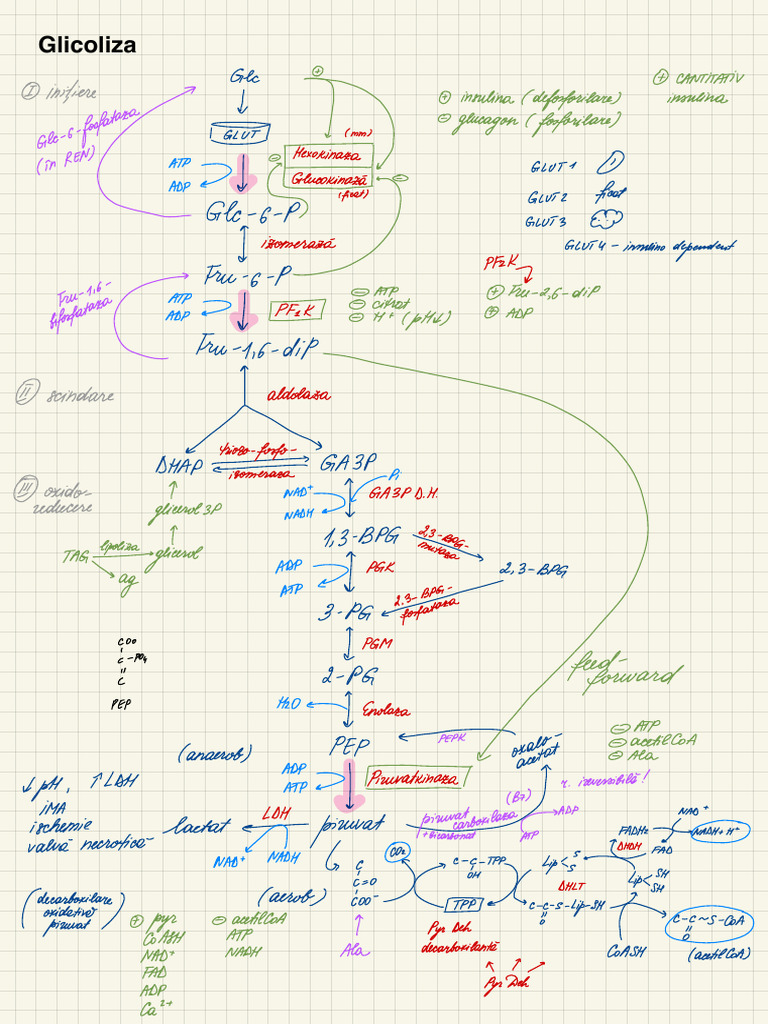 Glicoliza
Glc
Ⓘ inițiere
Glc-6-fosfataza
(în REN)
GLUT
ATP
ADP
⊕
⊖
(mm)
Hexokinaza
Glucokinază
(ficat)
⊖
⊕ insulina (defosforilare)
⊖ glucagon (fosforilare)
⊕ CANTITATIV
insulina
GLUT 1
GLUT 2 ficat
GLUT 3
GLUT 4 - insulino dependent
Glc-6-P
izomerază
Fru-6-P
Fru-1,6-
bifosfataza
ATP
ADP
PF1K
⊖ ATP
⊖ citrat
⊖ H+ (pH↓)
PF2K
⊕ Fru-2,6-diP
⊕ ADP
Fru-1,6-diP
Ⓘ Ⓘ scindare
aldolaza
DHAP
triozo-fosfo-
izomeraza
GA3P
III oxido-
reducere
NAD+
NADH
Pi
GA3P D.H.
glicerol 3P
TAG
lipoliza
glicerol
ag
1,3-BPG
2,3-BPG-
mutaza
2,3-BPG
ADP
ATP
PGK
2,3-BPG-
fosfataza
3-PG
PGM
2-PG
COO
C-PO4
C
PEP
feed-
forward
H2O
Enolaza
PEP
PEPK
oxalo-
acetat
⊖ ATP
⊖ acetil CoA
⊖ Ala
(anaerob)
ADP
ATP
Piruvatkinaza
r. ireversibilă!
↓ pH, ↑ LDH
iMA
ischemie
valvă necrotică
lactat
LDH
NAD+
NADH
piruvat
piruvat
carboxilaza
(B7)
+bicarbonat
ATP
ADP
(aerob)
C
C=O
COO-
Ala
CO2
C-C-TPP
OH
TPP
Pyr Deh
decarboxilantă
Lip S
S
DHLT
C-C-S-Lip-SH
O
Pyr Deh
FADH2
DHDH
FAD
NAD+
NADH+H+
Lip SH
SH
CoASH
C-C~S-CoA
O
(acetil CoA)
(decarboxilare
oxidativă
piruvat)
⊕ pyr
CoASH
NAD+
FAD
ADP
Ca2+
⊖ acetil CoA
ATP
NADH